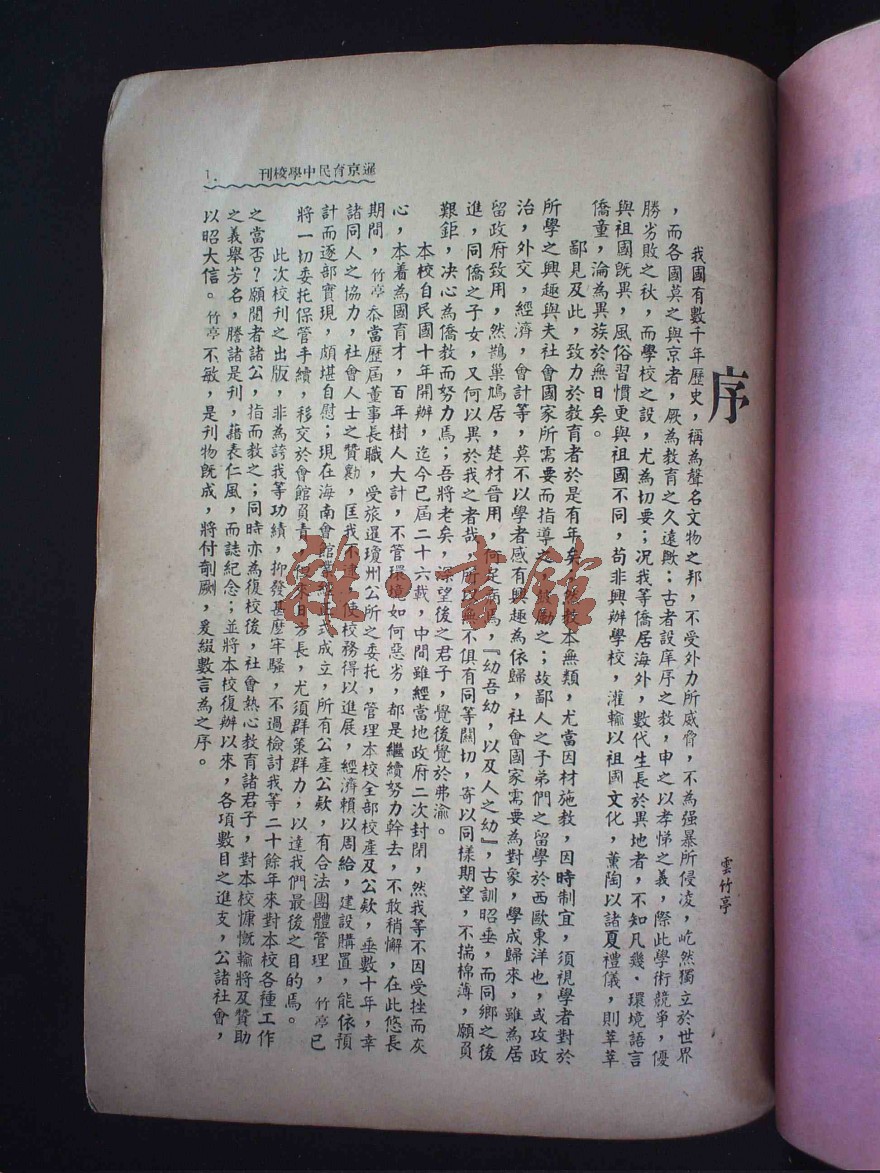 序
雲竹亭
我國有數千年歷史，稱為聲名文物之邦，不受外力所威脅，不為强暴所侵凌，屹然獨立於世界
，而各國莫之與京者，厥為教育之久遠歟：古者設庠序之教，申之以孝悌之義，際此學術競爭，優
勝劣敗之秋，而學校之設，尤為切要；况我等僑居海外，數代生長於異地者，不知凡幾．環境語言
與祖國旣異，風俗習慣更與祖國不同，苟非興辦學校，灌輸以祖國文化，薰陶以諸夏禮儀，則莘莘
僑童，淪為異族於無日矣。
鄙見及此，致力於教育者於是有年矣，然教本無類，尤當因材施教，因時制宜，須視學者對於
所學之興趣與夫社會國家所需要而指導之，鼓勵之；故鄙人之子弟們之留學於西歐東洋也，或攻政
治，外交，經濟，會計等，莫不以學者感有興趣為依歸，社會國家需要為對象，學成歸來，雖為居
留政府致用，然鵲巢鳩居，楚材晉用，何足病焉，『幼吾幼，以及人之幼』，古訓昭垂，而同鄉之後
進，同僑之子女，又何以異於我之者哉，所以無不俱有同等關切，寄以同樣期望，不揣棉薄，願負
艱鉅，决心為僑教而努力焉；吾將老矣，深望後之君子，覺後覺於弗渝。
本校自民國十年開辦，迄今已屆二十六載，中間雖經當地政府二次封閉，然我等不因受挫而灰
心，本着為國育才，百年樹人大計，不管環境如何惡劣，都是繼續努力幹去，不敢稍懈，在此悠長
期間，竹亭忝當歷屆董事長職，受旅暹瓊州公所之委托，管理本校全部校產及公欵，垂數十年，幸
諸同人之協力，社會人士之贊勷，匡我不逮，使校務得以進展，經濟賴以周給，建設購置，能依預
計而逐部實現，頗堪自慰；現在海南會館正式成立，所有公產公欵，有合法團體管理，竹亭已
將一切委托保管手續，移交於會館負責，但來日方長，尤須群策群力，以達我們最後之目的焉。
此次校刊之出版，非為誇我等功績，抑發甚麼牢騷，不過檢討我等二十餘年來對本校各種工作
之當否？願閱者諸公，指而教之；同時亦為復校後，社會熱心教育諸君子，對本校慷慨輸將及贊助
之義舉芳名，謄諸是刊，藉表仁風，而誌紀念；並將本校復辦以來，各項數目之進支，公諸社會，
以昭大信。竹亭不敏，是刊物旣成，將付剞劂，爰綴數言為之序。
暹京育民中學校刊
1.
雜·書館